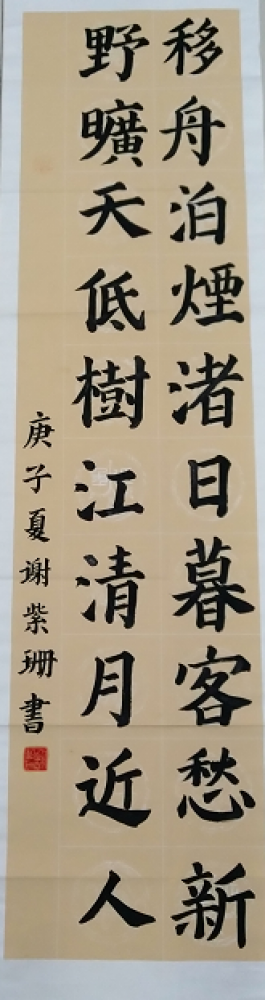 移舟泊煙渚日暮客愁新
野曠天低樹江清月近人
庚子夏谢紫珊書